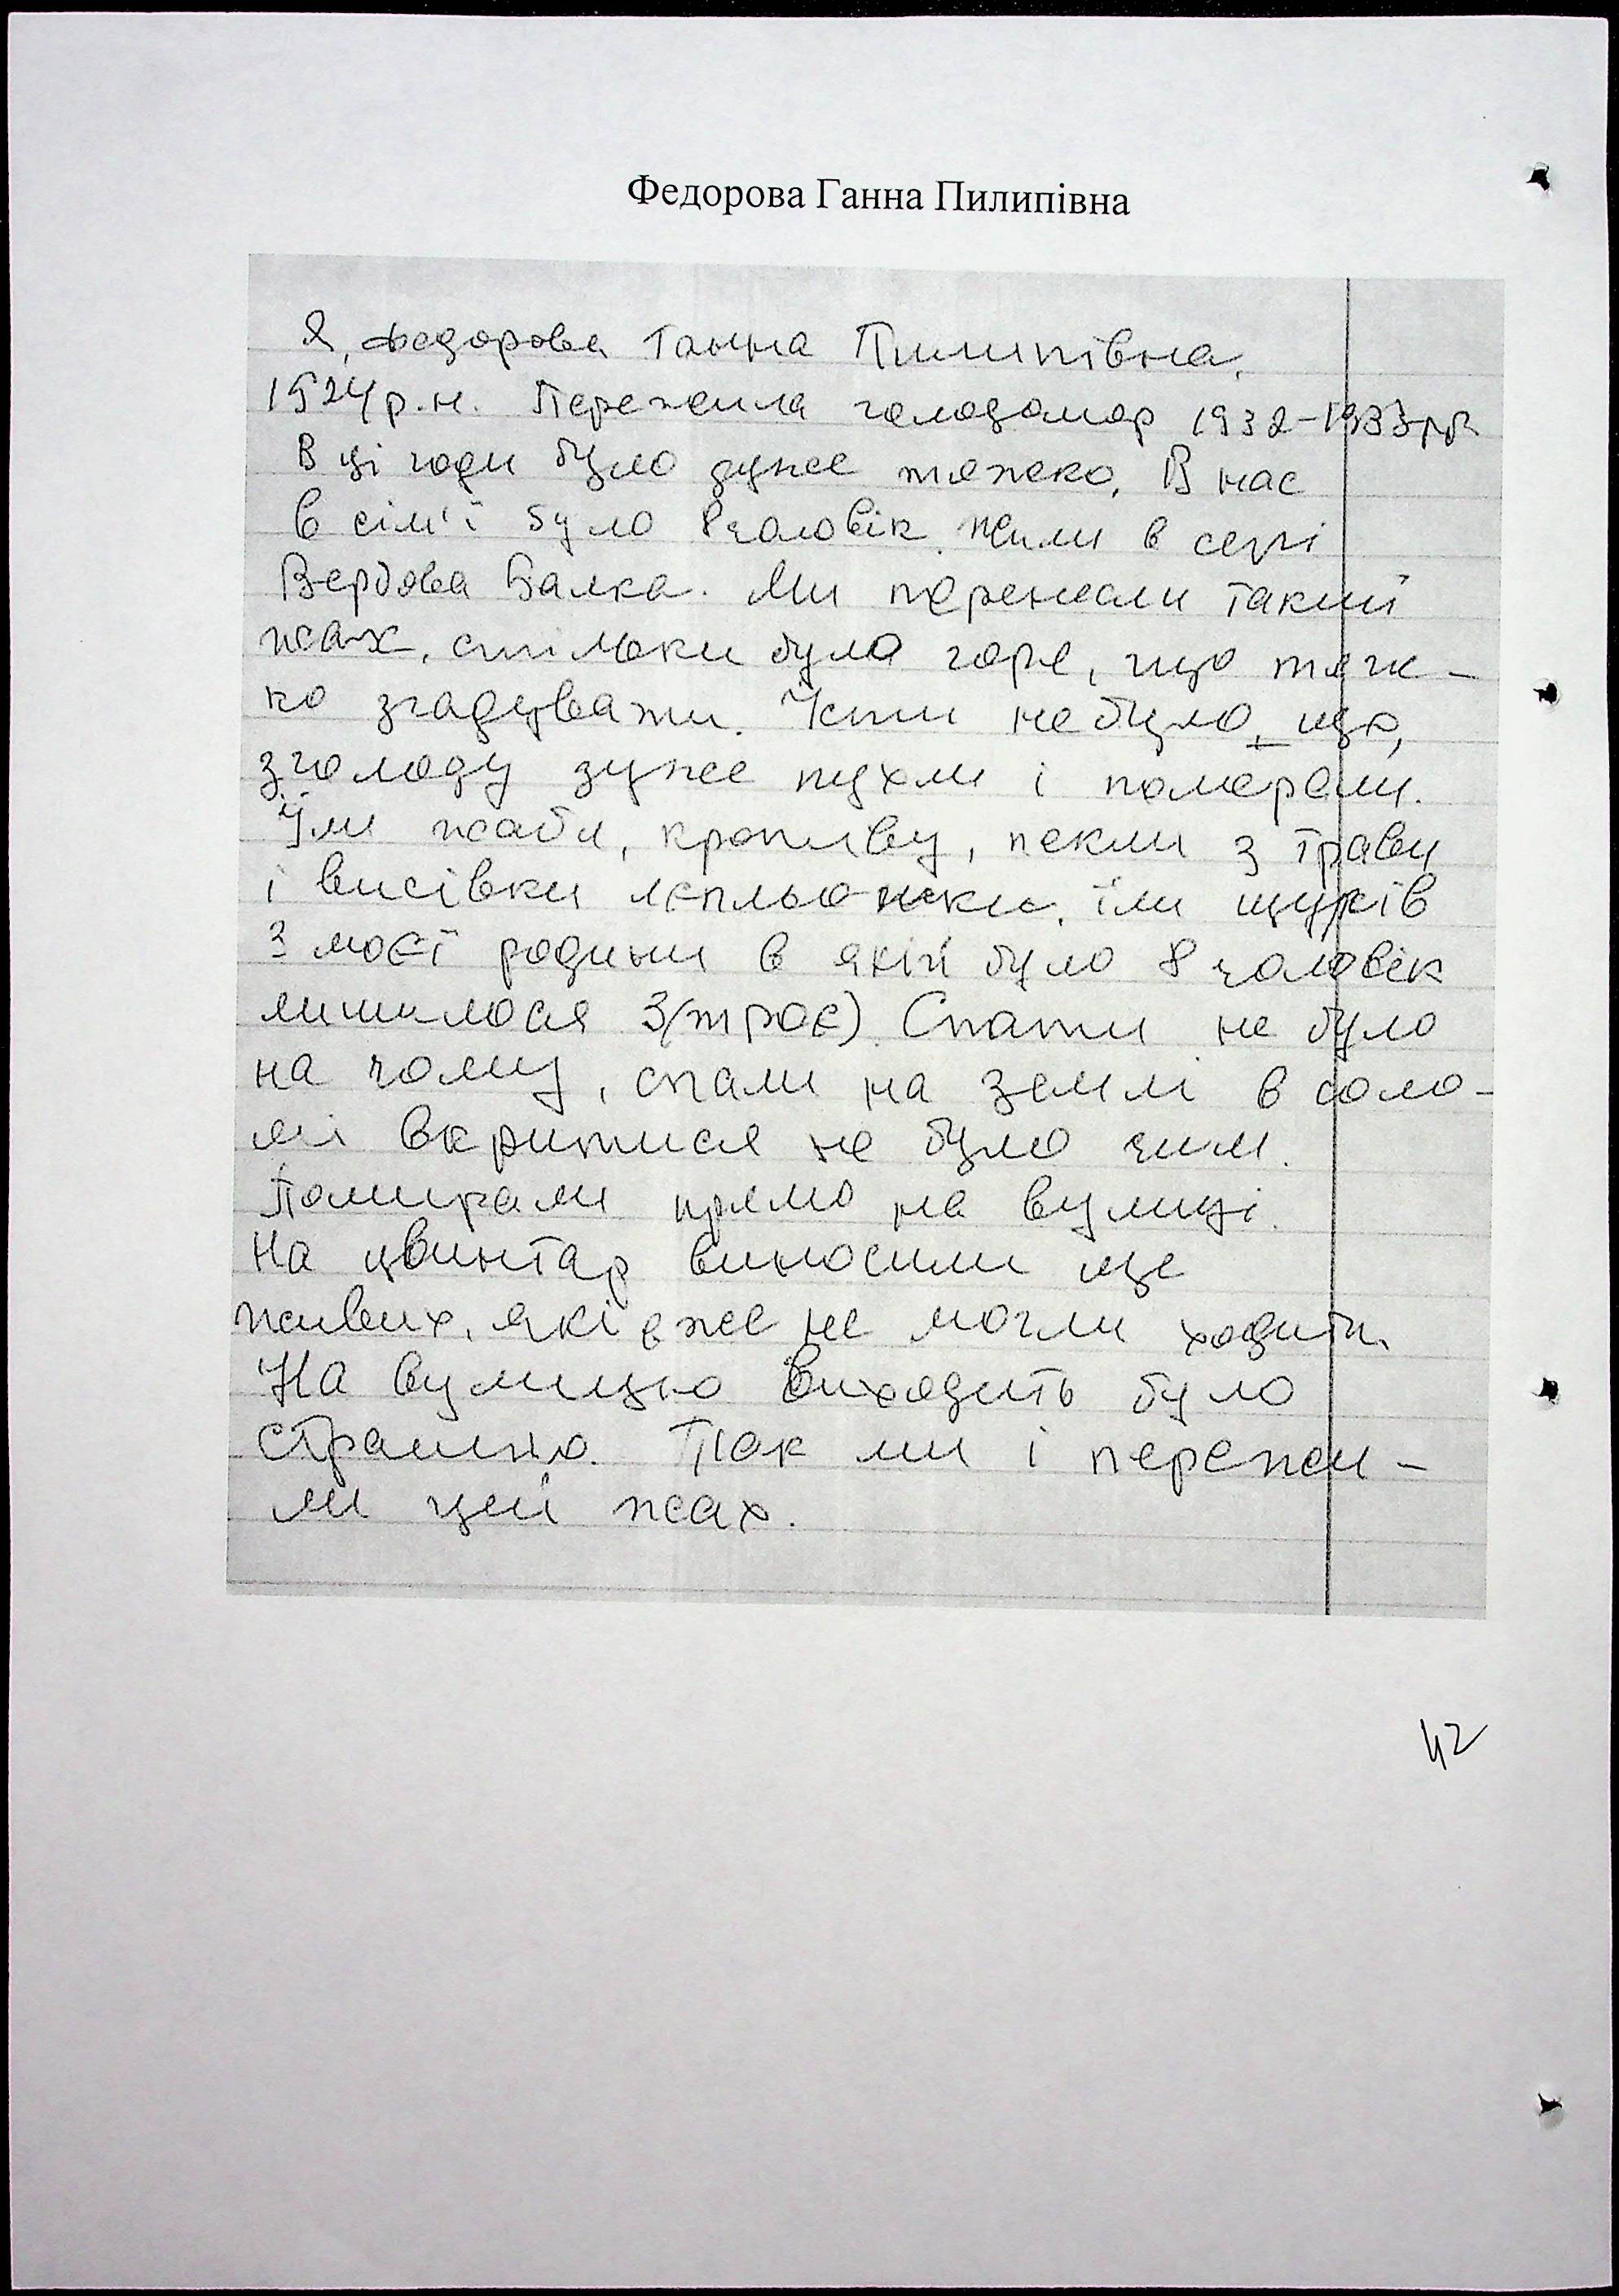 Федорова Ганна Пилипівна
Я, Федорова Ганна Пилипівна,
1924 р.н. Пережила голодомор 1932-1933 рр
В ці годи було дуже тяжко. В нас
в сім'ї було 8 чоловік. Жили в селі
Вербова Балка. Ми пережали такий
жах, стільки було горе, що тяж-
ко згадувати. Їсти не було, що,
з голоду дуже пухли і померали.
Їли жаби, кропиву, пекли з трави
і висівки лєпльоники, їли щурів
З моєї родини в якій було 8 чоловік
лишилося 3 (троє). Спати не було
на чому, спали на землі в соло-
мі вкритися не було чим.
Помирали прямо на вулиці.
На цвинтар виносили ще
живих, які вже не могли ходити.
На вулицю виходить було
страшно. Так ми і пережи-
ли цей жах.
42